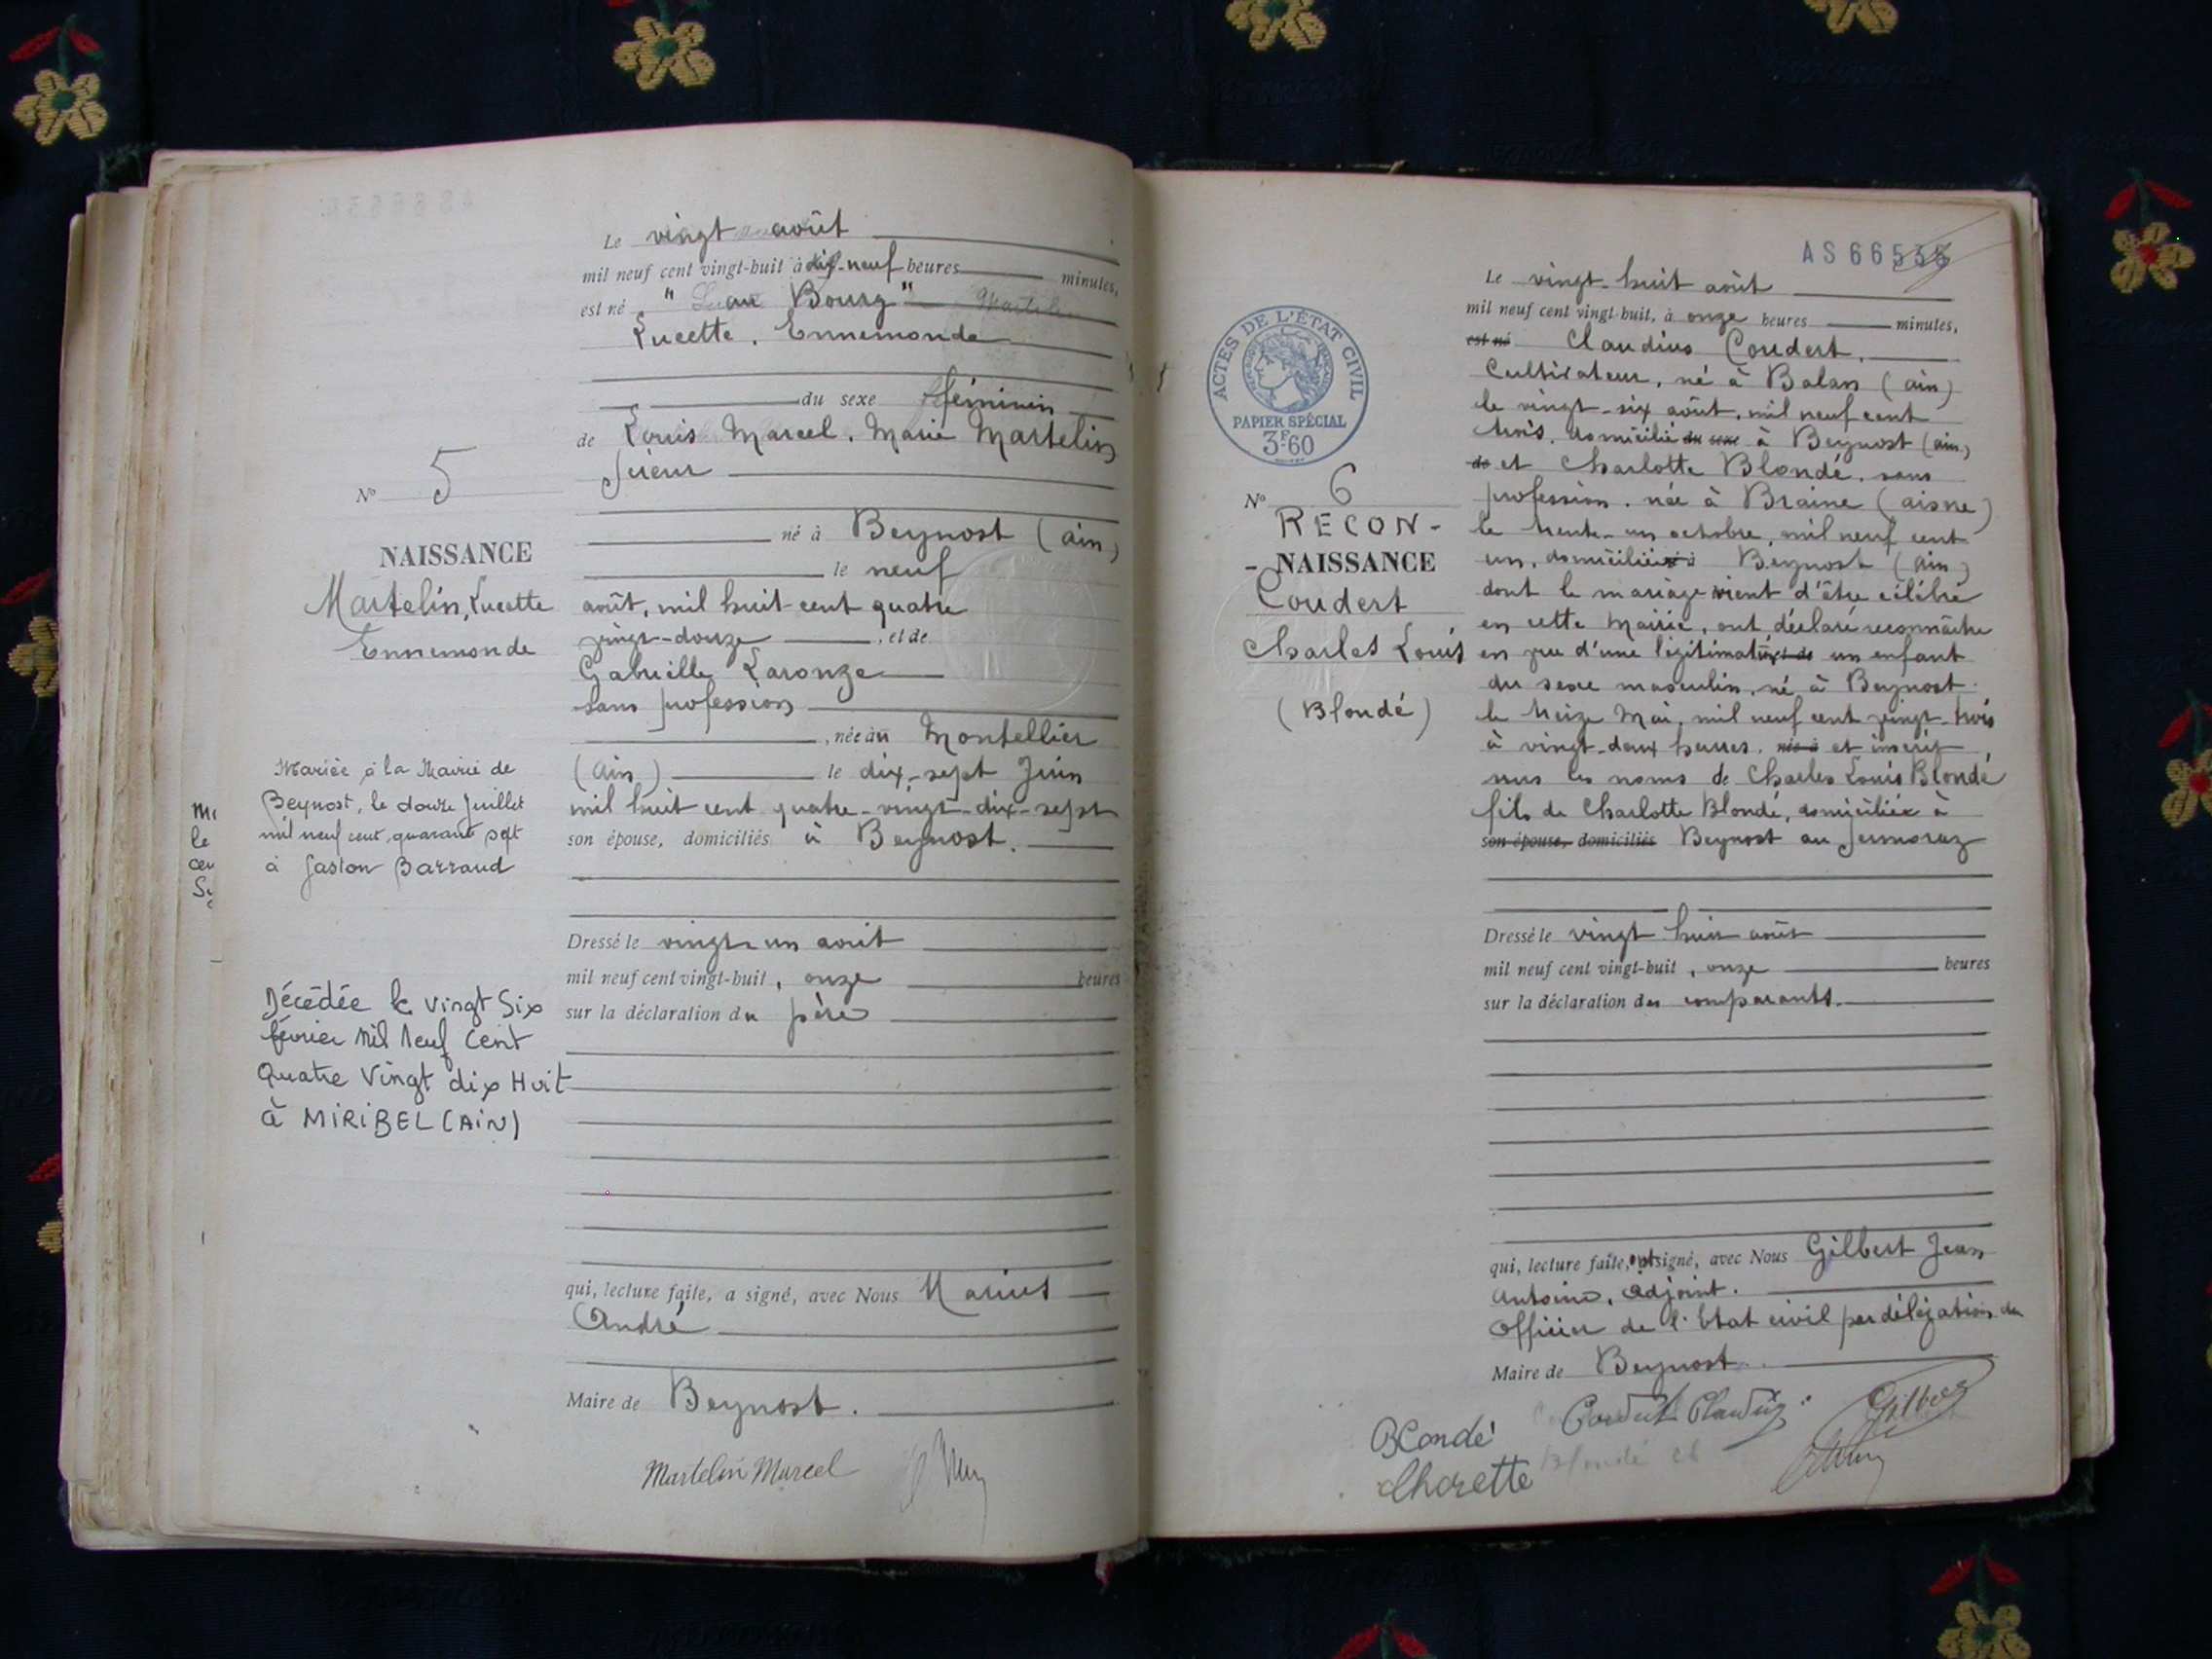 Le vingt août
mil neuf cent vingt-huit à dix-neuf heures minutes,
est né "au Bourg"
Lucette, Ennemonde
du sexe féminin
de Louis Marcel, Marie Martelin
Scieur
né à Beynost (ain)
le neuf
août, mil huit cent quatre
vingt-douze, et de
Gabrielle Laronze
sans profession
, née à Montellier
(Ain) le dix-sept Juin
mil huit cent quatre-vingt-dix-sept
son épouse, domiciliés à Beynost.
Dressé le vingt-un aout
mil neuf cent vingt-huit, onze heures
sur la déclaration du père
qui, lecture faite, a signé, avec Nous Marius
André
Maire de Beynost.
Martelin Marcel
N° 5
NAISSANCE
Martelin, Lucette
Ennemonde
Mariée à la Mairie de
Beynost, le douze Juillet
mil neuf cent quarante sept
à Gaston Barraud
Décédée le vingt Six
février Mil Neuf Cent
Quatre Vingt dix Huit
à MIRIBEL (AIN)
le
AS 665
ACTES DE L'ÉTAT CIVIL
PAPIER SPÉCIAL
3F60
N° 6
RECON-
- NAISSANCE
Coudert
Charles Louis
(Blondé)
Le vingt-huit août
mil neuf cent vingt-huit, à onze heures minutes,
est né Claudius Coudert,
Cultivateur, né à Balan (ain)
le vingt-six août, mil neuf cent
trois, domicilié du sexe à Beynost (ain)
de et Charlotte Blondé, sans
profession, née à Braine (aisne)
le trente-un octobre, mil neuf cent
un, domiciliée né à Beynost (ain)
dont le mariage vient d'être célébré
en cette Mairie, ont déclaré reconnaître
en vue d'une légitimation et de un enfant
du sexe masculin, né à Beynost
le treize Mai, mil neuf cent vingt-trois
à vingt-deux heures, née à et inscrit
sous les noms de Charles Louis Blondé
fils de Charlotte Blondé, domiciliée à
son épouse, domiciliés Beynost au
Dressé le vingt huit août
mil neuf cent vingt-huit, onze heures
sur la déclaration des comparants.
qui, lecture faite, ont signé, avec Nous Gilbert Jean
Antoine, adjoint.
Officier de l'Etat civil par délégation du
Maire de Beynost
Coudert Claudius
Gilbert
Blondé
Charlotte